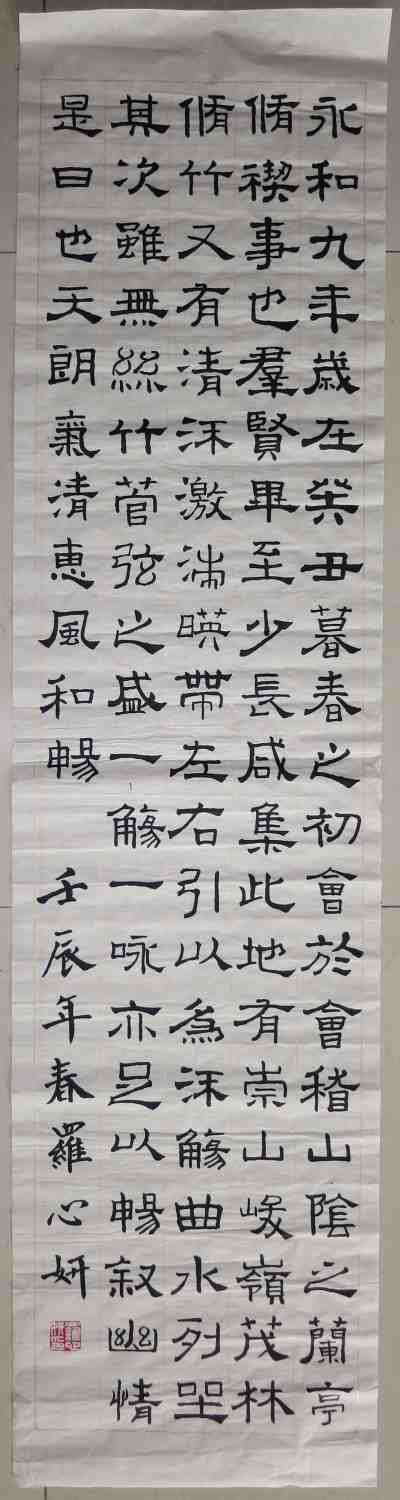 永和九年歲在癸丑暮春之初會於會稽山陰之蘭亭
脩禊事也羣賢畢至少長咸集此地有崇山峻嶺茂林
脩竹又有清流激湍暎帶左右引以為流觴曲水列坐
其次雖無絲竹管弦之盛一觴一詠亦足以暢叙幽情
是日也天朗氣清惠風和暢 壬辰年春羅心妍